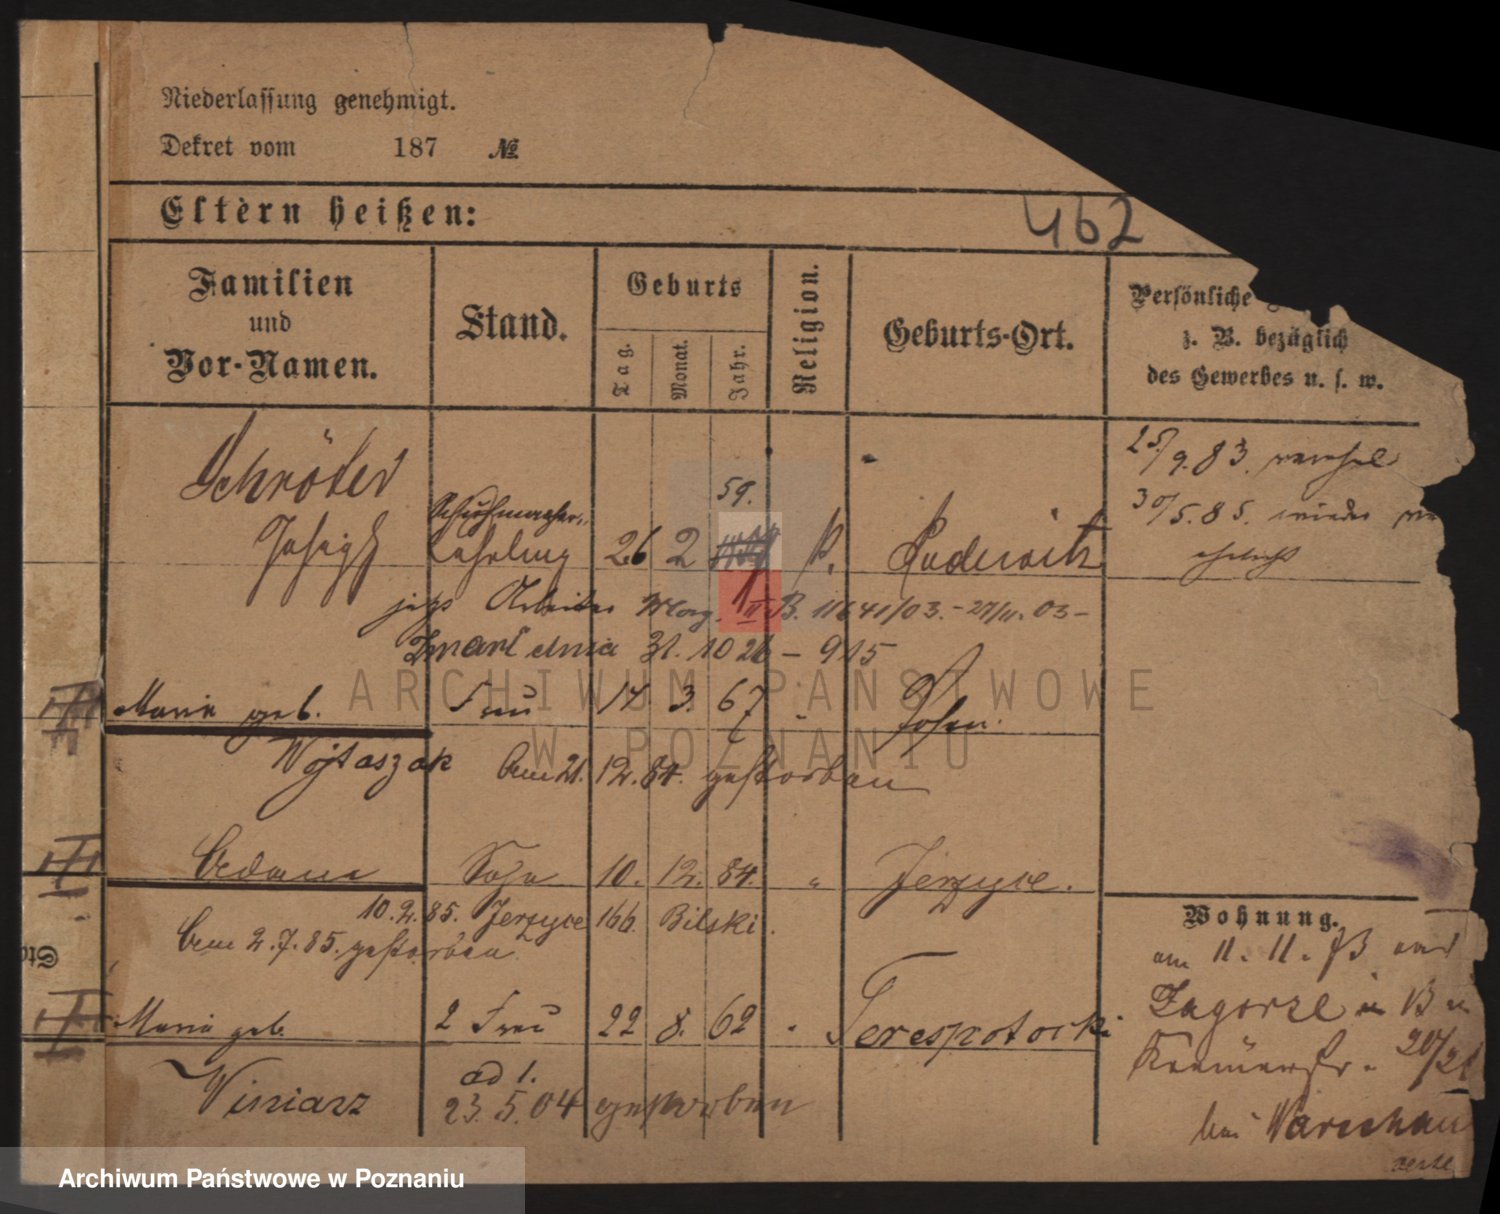 Niederlassung genehmigt.
Dekret vom 187 №
Eltern heißen:
462
Familien
und
Vor-Namen.
Stand.
Geburts
Tag.
Monat.
Jahr.
Religion.
Geburts-Ort.
Persönliche
z. B. bezüglich
des Gewerbes u. s. w.
Schröder
Joseph
Schuhmacher
Lehrling
26 2 59.
Pudewitz
25/9.83.
30/5.85. wieder
ehelicht
jetzt Arbeiter II. B. 11641/03. - 27/11. 03 -
Zmarł dnia 31. 10 26 - 915
Maria geb. Frau 14. 3. 67 " Posen.
Wojtaszak am 21. 12. 84. gestorben
Adam Sohn 10. 12. 84. " Jerzyce.
10.2.85. Jerzyce 166. Bilski.
Am 2.7.85. gestorben.
Maria geb. 2 Frau 22 8. 62 " Terespotocki
Winiarz
ad 1.
23. 5. 04 gestorben
Wohnung.
am 11. 11. 73
Zagorze
20/21
bei Warschau
ARCHIWUM PAŃSTWOWE
W POZNANIU
Archiwum Państwowe w Poznaniu